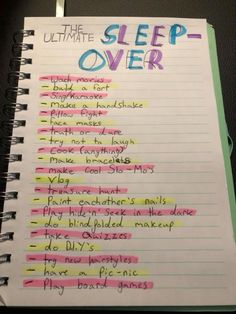 THE
ULTIMATE SLEEP-
OVER
- Wach movies
- build a fort
- Sing/Karaoke
- Make a handshake
- Pillow fight
- face masks
- truth or dare
- try not to laugh
- Cook (anything)
- Make bracelets
- make cool Slo-Mo's
- Vlog
- treasure hunt
- Paint eachother's nails
- Play hide 'n' seek in the dark
- do blindfolded makeup
- take Quizzes
- do D.I.Y's
- try new hairstyles
- have a Pic-nic
- Play board games